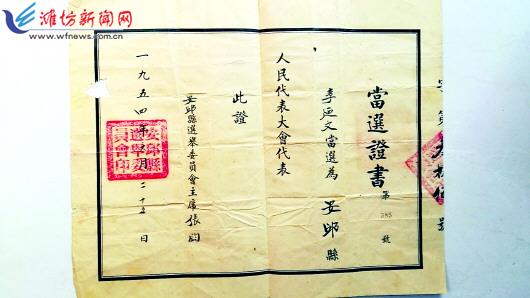 潍坊新闻网
www.wfnews.com.cn
字第
號
當選證書
第385號
李延文當選為安邱縣
人民代表大會代表
此證
安邱縣選舉委員會主席張
一九五四年 月二十五日
安邱縣
選舉委
員會印